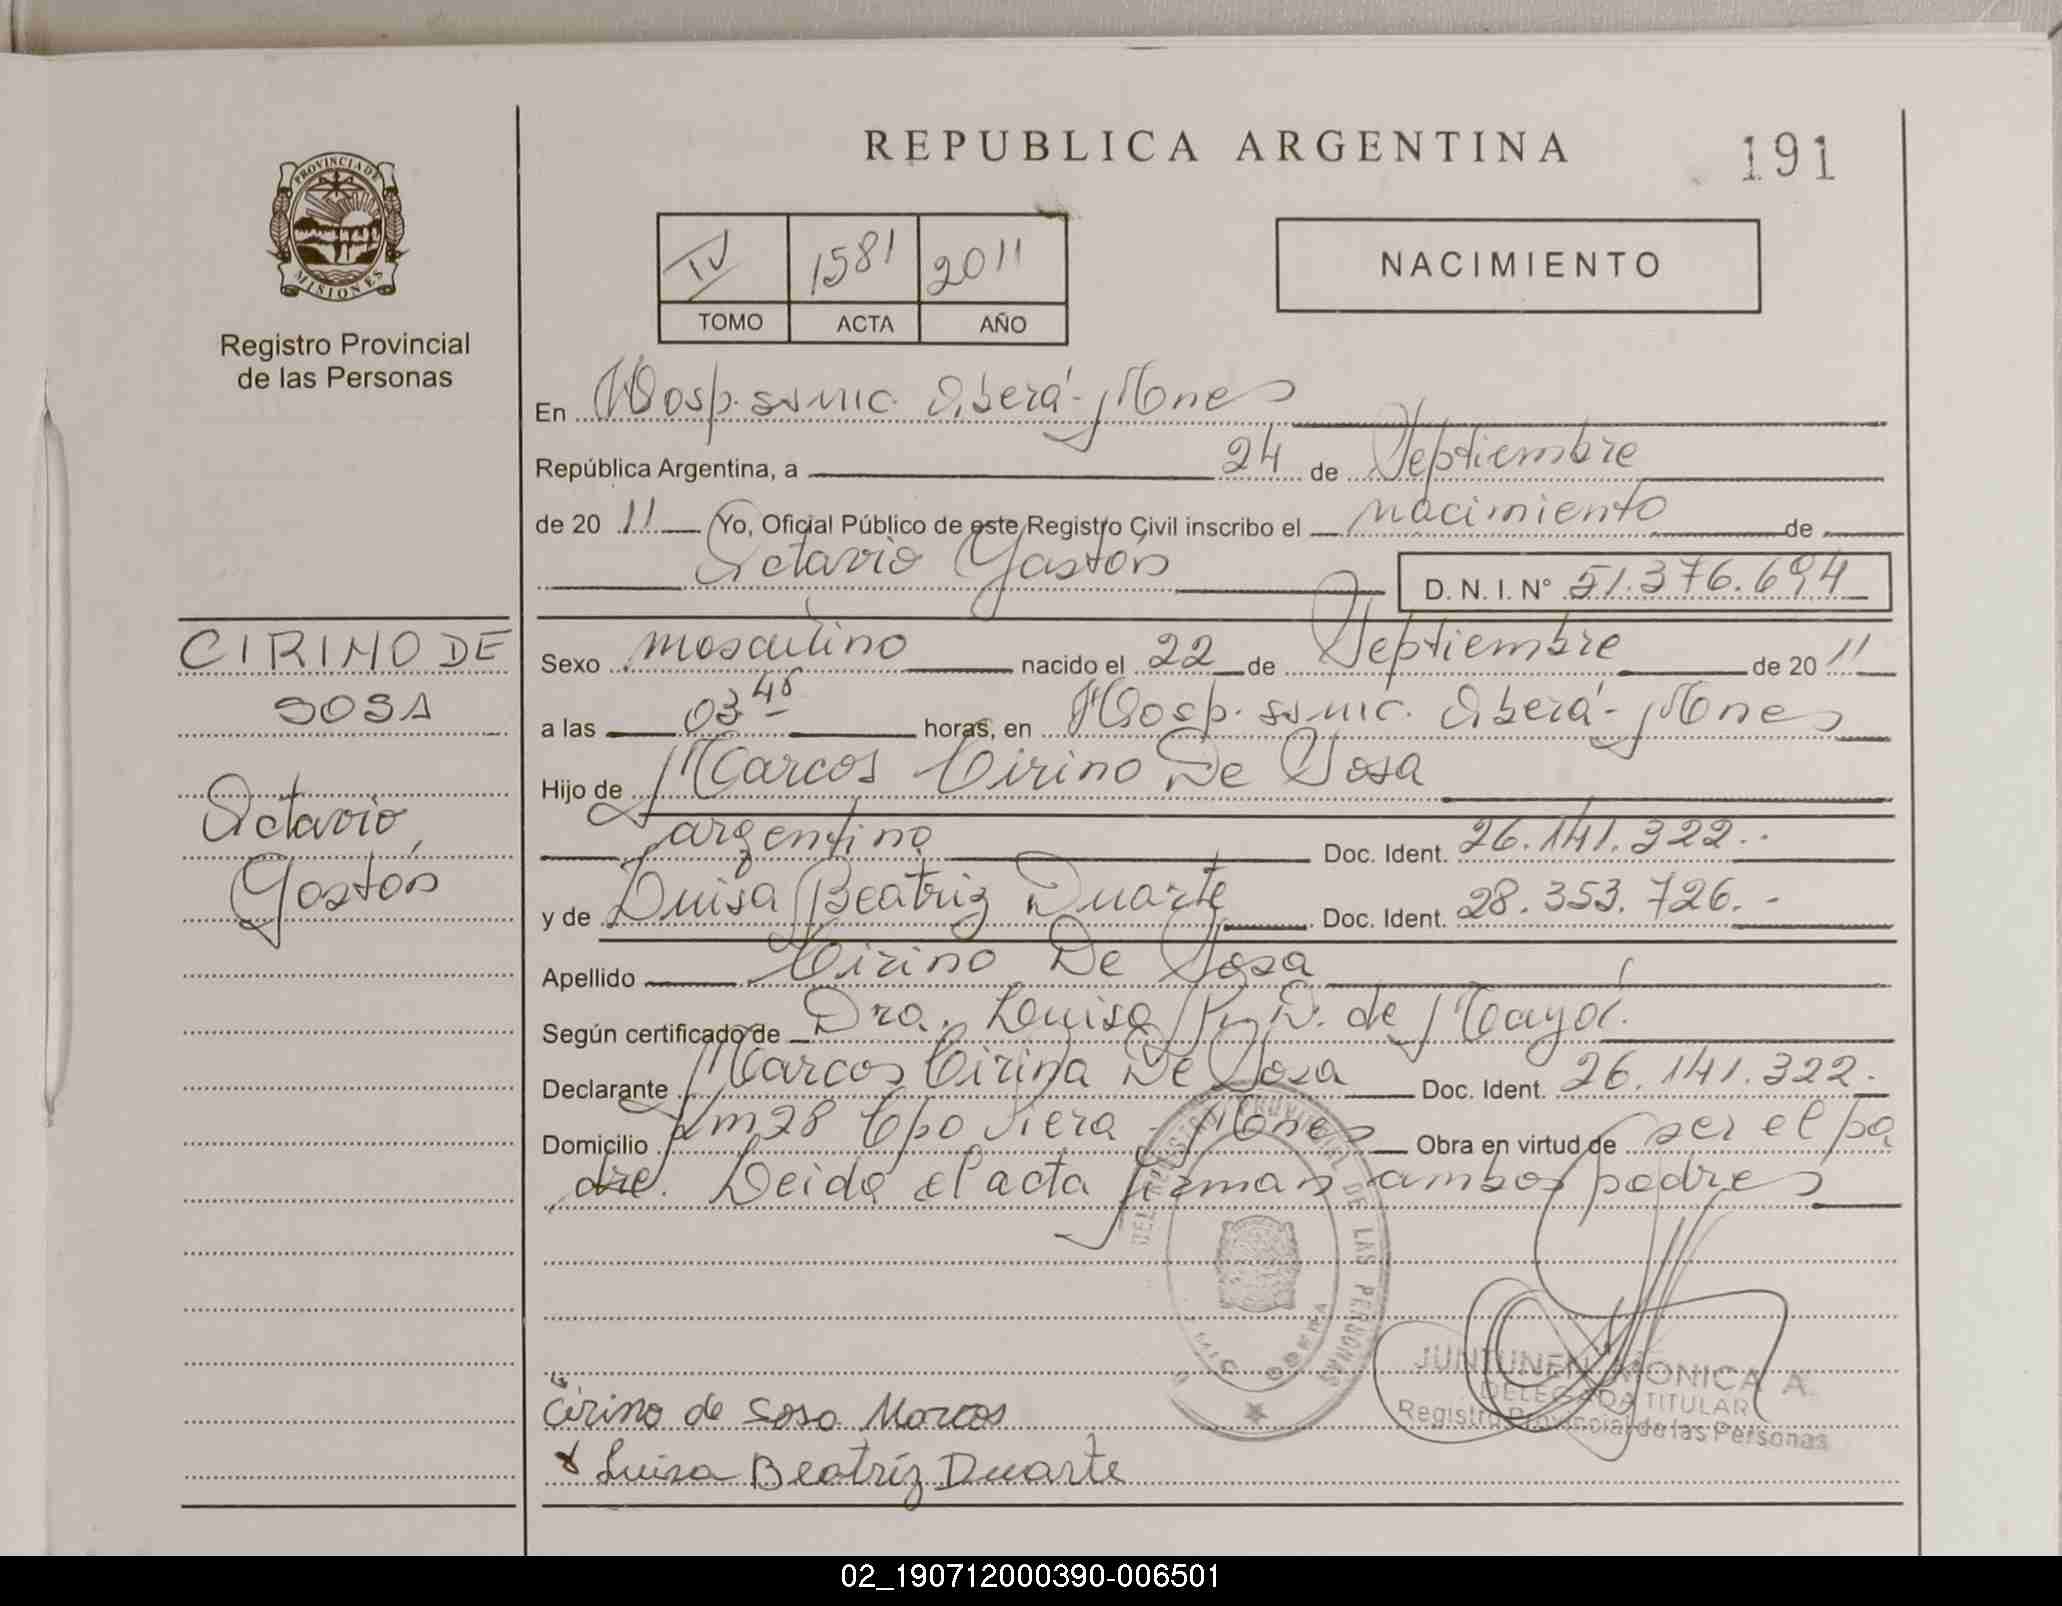 REPUBLICA ARGENTINA
191
PROVINCIA DE
MISIONES
Registro Provincial
de las Personas
IV 1581 2011
TOMO ACTA AÑO
NACIMIENTO
En Hosp. ssmic. Oberá - Mnes
República Argentina, a 24 de Septiembre
de 20 11 Yo, Oficial Público de este Registro Civil inscribo el nacimiento de
Octavio Gastón D. N. I. N° 51.376.694
CIRINO DE
SOSA
Octavio
Gastón
Sexo masculino nacido el 22 de Septiembre de 20 11
a las 03 horas, en Hosp. ssmic. Oberá - Mnes
Hijo de Marcos Cirino De Sosa
argentino Doc. Ident. 26.141.322.-
y de Luisa Beatriz Duarte Doc. Ident. 28.353.726.-
Apellido Cirino De Sosa
Según certificado de Dra. Luisa D. de
Declarante Marcos Cirino De Sosa Doc. Ident. 26.141.322.-
Domicilio Km 28 Cpo Viera - Mnes Obra en virtud de ser el pa
dre. Leida el acta firman ambos padres
DEL REGISTRO PROVINCIAL DE LAS PERSONAS
JUNTUNEN MONICA A.
DELEGADA TITULAR
Registro Provincial de las Personas
Cirino de Sosa Marcos
x Luisa Beatríz Duarte
02_190712000390-006501